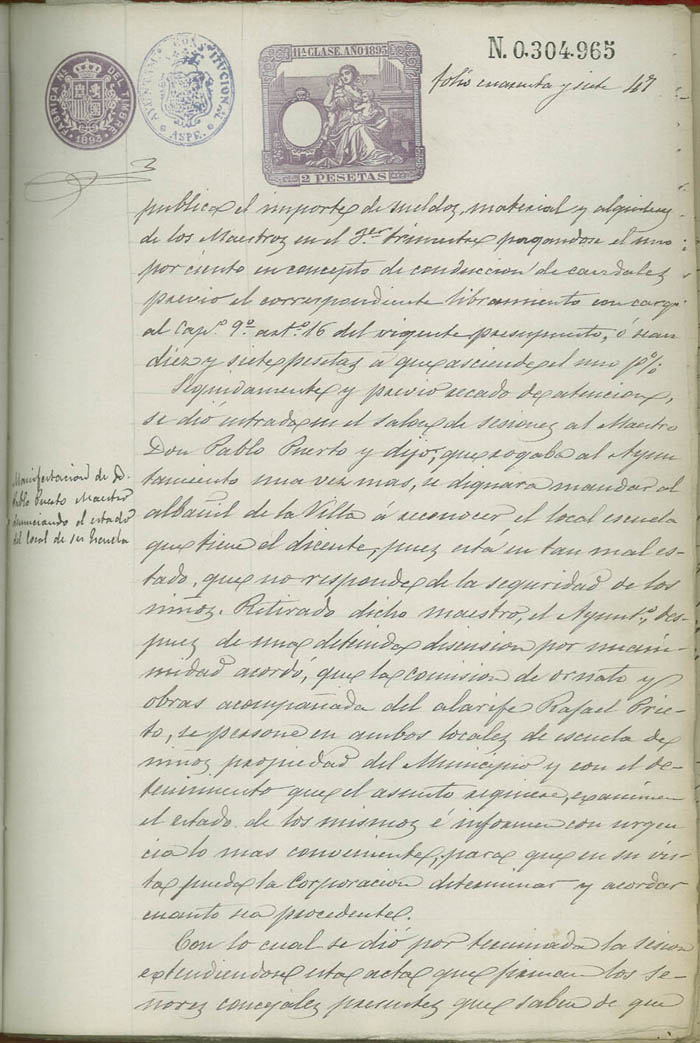 N. 0.304.965
11ª CLASE. AÑO 1893
2 PESETAS
FÁBRICA NL. DEL TIMBRE
1893
AYUNTAM. CONSTITUCIONAL
ASPE.
folio cuarenta y siete 47
publica el importe de sueldos, material y alquileres
de los Maestros en el 3.er trimestre pagandose el uno
por ciento en concepto de conduccion de caudales
previo el correspondiente libramiento con cargo
al Cap.º 9º art.º 16 del vigente presupuesto, ó sean
diez y siete pesetas á que asciende el uno p%
Seguidamente y previo recado de atencion,
se dió entrada en el salon de sesiones al Maestro
Don Pablo Puerto y dijo, que rogaba al Ayun-
tamiento una vez mas, se dignara mandar al
albañil de la Villa á reconocer el local escuela
que tiene el dicente, pues está en tan mal es-
tado, que no responde de la seguridad de los
niños. Retirado dicho maestro, el Ayunt.º, des-
pues de una detenida discusion por unani-
midad acordó, que la comision de ornato y
obras acompañada del alarife Rafael Prie-
to, se persone en ambos locales de escuela de
niños propiedad del Municipio y con el de-
tenimiento que el asunto requiere, examinen
el estado de los mismos é informen con urgen
cia lo mas conveniente, para que en su vis-
ta pueda la Corporacion determinar y acordar
cuanto sea procedente.
Con lo cual se dió por terminada la sesion
extendiendose esta acta que firman los se-
ñores concejales presentes que saben de que
Manifestacion de D.
Pablo Puerto Maestro
denunciando el estado
del local de su Escuela